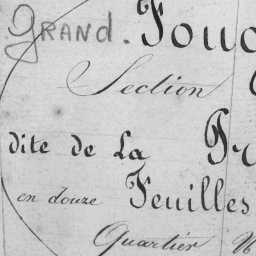 Grand.
Section
dite de La
en douze Feuilles
Quartier